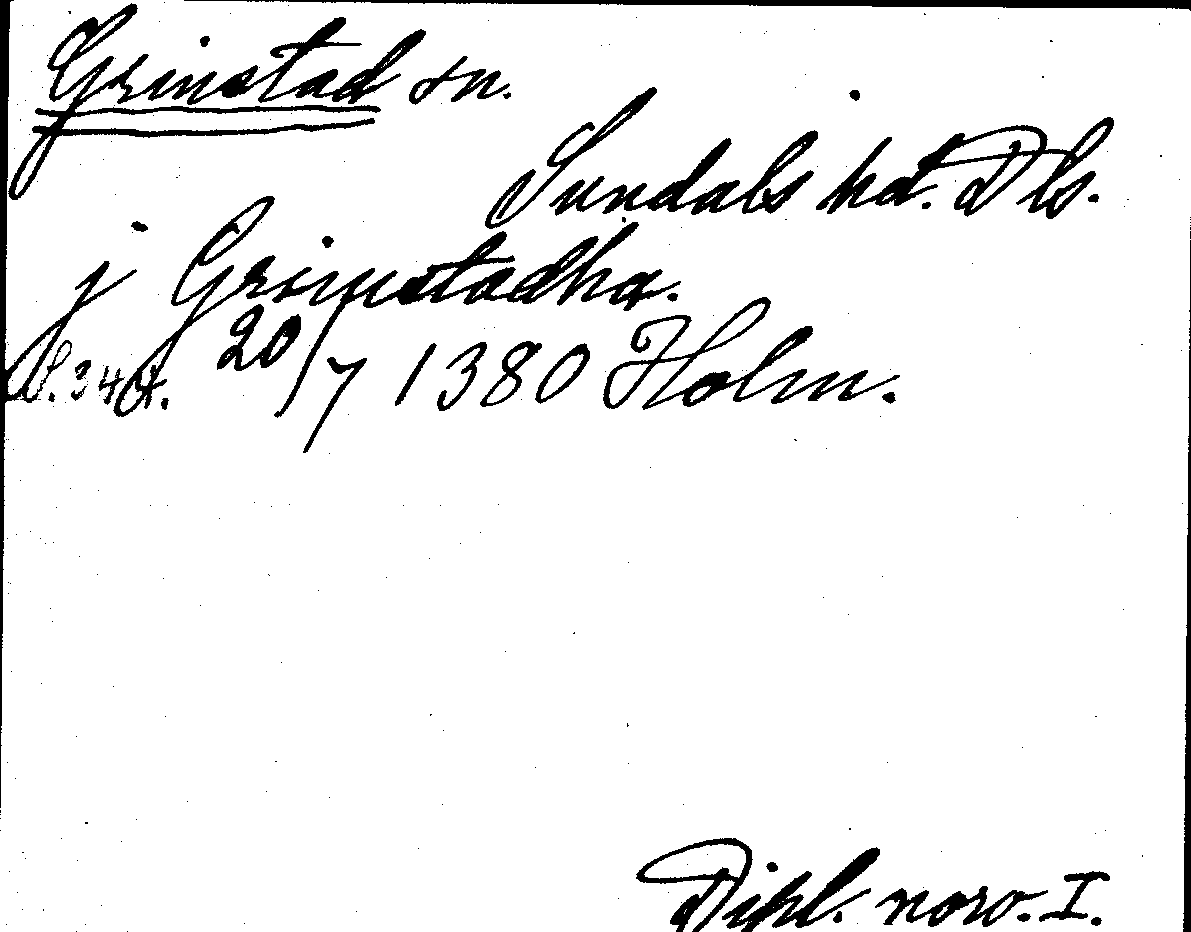 Grinstad sn.
Sundals hd. Dls.
j Grimstadha.
S. 344. 20/7 1380 Holm.
Dipl. norv. I.